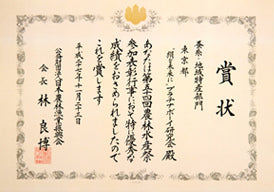 賞状
蚕糸・地域特産部門
東京都
絹を未来にプラチナボーイ研究会 殿
あなたは第五十四回農林水産祭
参加表彰行事において特に優秀な
成績をおさめられましたので
これを賞します
平成二十七年十一月二十三日
公益財団法人日本農林漁業振興会
会長 林 良博